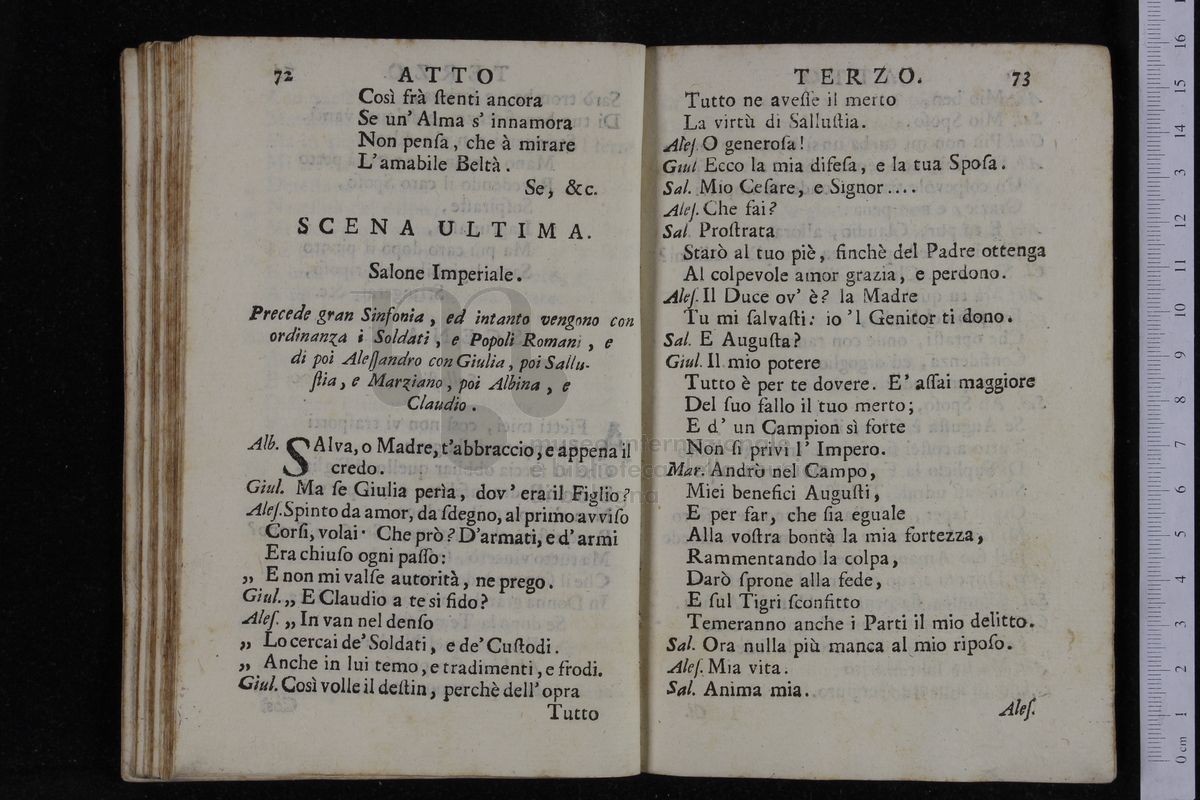 72 ATTO
Così frà ſtenti ancora
Se un' Alma s' innamora
Non penſa, che à mirare
L'amabile Beltà.
Se, &c.
SCENA ULTIMA.
Salone Imperiale.
Precede gran Sinfonia, ed intanto vengono con
ordinanza i Soldati, e Popoli Romani, e
di poi Aleſſandro con Giulia, poi Salluſ-
ſtia, e Marziano, poi Albina, e
Claudio.
Alb. SAlva, o Madre, t'abbraccio, e appena il
credo.
Giul. Ma ſe Giulia perìa, dov' era il Figlio?
Aleſ. Spinto da amor, da ſdegno, al primo avviſo
Corſi, volai. Che prò? D'armati, e d' armi
Era chiuſo ogni paſſo:
„ E non mi valſe autorità, ne prego.
Giul. „ E Claudio a te si fido?
Aleſ. „ In van nel denſo
„ Lo cercai de' Soldati, e de' Cuſtodi.
„ Anche in lui temo, e tradimenti, e frodi.
Giul. Così volle il deſtin, perchè dell' opra
Tutto
TERZO. 73
Tutto ne aveſſe il merto
La virtù di Salluſtia.
Aleſ. O generoſa!
Giul Ecco la mia difeſa, e la tua Spoſa.
Sal. Mio Ceſare, e Signor....
Aleſ. Che fai?
Sal. Proſtrata
Starò al tuo piè, finchè del Padre ottenga
Al colpevole amor grazia, e perdono.
Aleſ. Il Duce ov' è? la Madre
Tu mi ſalvaſti: io 'l Genitor ti dono.
Sal. E Auguſta?
Giul. Il mio potere
Tutto è per te dovere. E' aſſai maggiore
Del ſuo fallo il tuo merto;
E d' un Campion sì forte
Non ſi privi l' Impero.
Mar. Andrò nel Campo,
Miei benefici Auguſti,
E per far, che ſia eguale
Alla voſtra bontà la mia fortezza,
Rammentando la colpa,
Darò ſprone alla fede,
E ſul Tigri ſconfitto
Temeranno anche i Parti il mio delitto.
Sal. Ora nulla più manca al mio ripoſo.
Aleſ. Mia vita.
Sal. Anima mia.
Aleſ.
museo internazionale
e biblioteca della musica
di bologna
0 cm 1 2 3 4 5 6 7 8 9 10 11 12 13 14 15 16